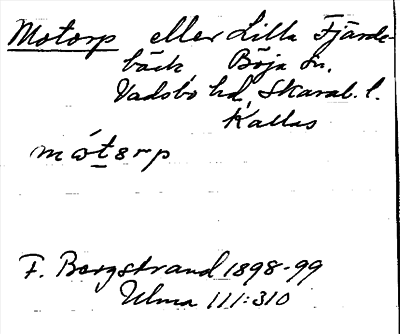 Motorp eller Lilla Fjärde-
bäck Böja sn.
Vadsbo hd, Skarab. l.
Kallas
mótorp
F. Bergstrand 1898-99
Ulma 111:310